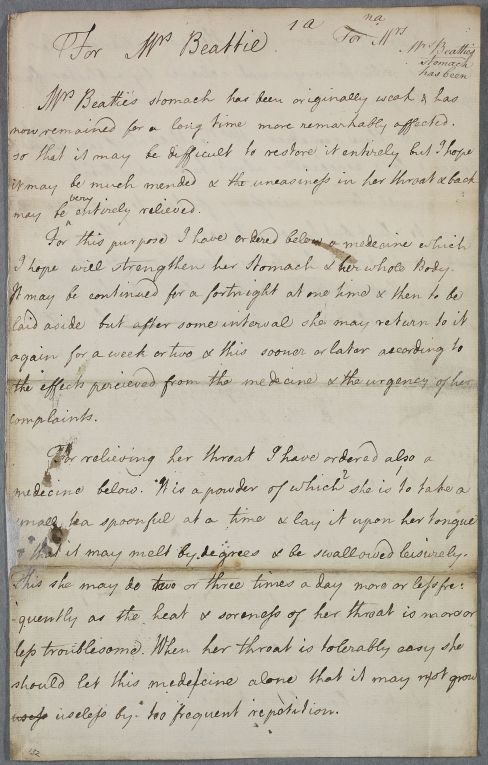 1a na
For Mrs Beattie. For Mrs
Mrs Beatties
stomach
has been
Mrs Beatties stomach has been originally weak & has
now remained for a long time more remarkably affected.
so that it may be difficult to restore it entirely but I hope
it may be much mended & the uneasiness in her throat & back
may be very entirely relieved.
For this purpose I have ordered below a medecine which
I hope will strengthen her stomach & her whole Body.
It may be continued for a fortnight at one time & then to be
laid aside but after some interval she may return to it
again for a week or two & this sooner or later according to
the effects percieved from the medecine & the urgency of her
complaints.
For relieving her throat I have ordered also a
medecine below. It is a powder of which she is to take a
small tea spoonful at a time & lay it upon her tongue
that it may melt by degrees & be swallowed leisurely.
This she may do two or three times a day more or less fre:
:quently as the heat & soreness of her throat is more or
less troublesome. When her throat is tolerably easy she
should let this medecine alone that it may not grow
useless by too frequent repetition.
132